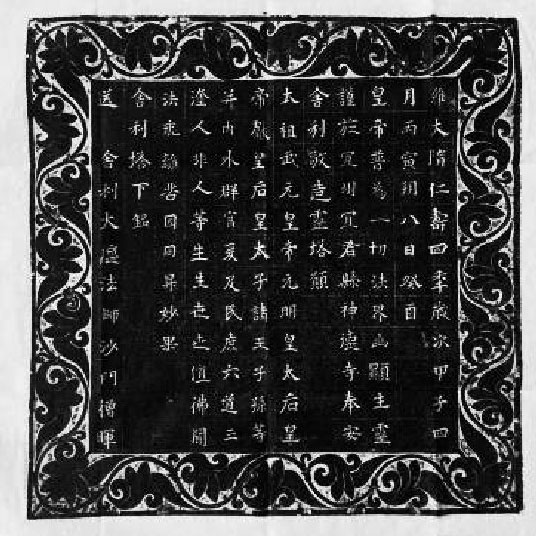 維大隋仁壽四年歲次甲子四
月丙寅朔八日癸酉
皇帝普為一切法界幽顯生靈
謹於宜州宜君縣神德寺奉安
舍利敬造靈塔願
太祖武元皇帝元明皇太后皇
帝獻皇后皇太子諸王子孫等
并內外群官爰及民庶六道三
塗人非人等生生世世值佛聞
法永離苦因同昇妙果
舍利塔下銘
送舍利大德法師沙門僧暉